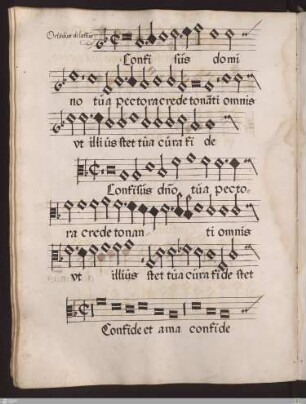 Orlandus di lassus
Confi sus domi
no tua pectora crede tonati omnis
vt illius stet tua cura fi de
Confisus dño tua pecto-
ra crede tonan ti omnis
vt illius stet tua cura fide stet
Confide et ama confide